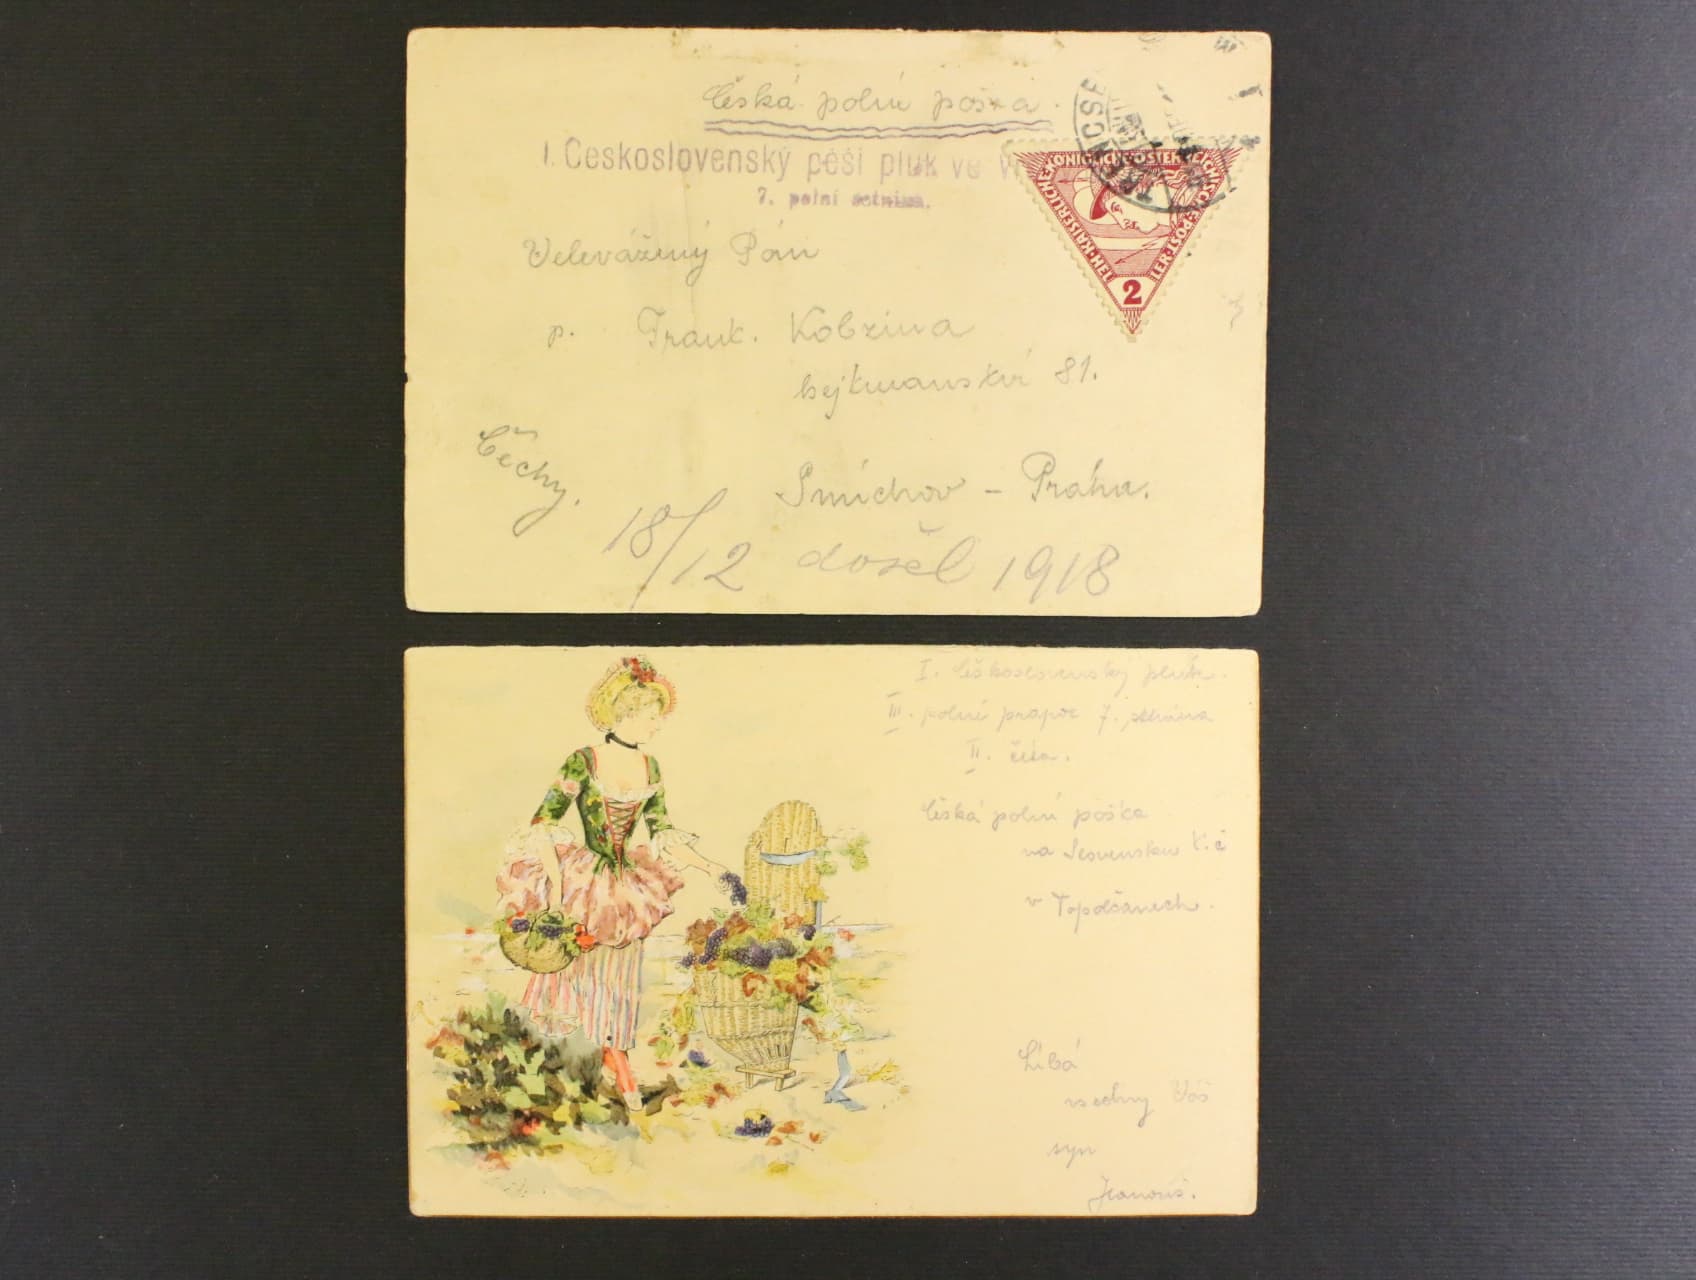 Česká polní pošta.
I. Československý pěší pluk ve
7. polní setnina.
KAISERLICHE KÖNIGLICH ÖSTERREICHISCHE POST
HELLER
2
TRENCSÉN
Velevážený Pán
p. Frant. Kobzina
hejtmanská 81.
Smíchov - Praha.
Čechy.
18/12 došel 1918
I. Československý pluk.
III. polní prapor 7. setnina
II. četa.
Česká polní pošta
na Slovensku
v Topolčanech.
Líbá
všechny Váš
syn